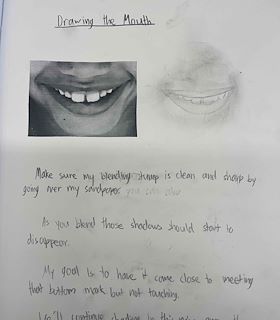 Drawing the Mouth
Make sure my blending stump is clean and sharp by
going over my sandpaper
As you blend those shadows should start to
disappear.
My goal is to have it come close to meeting
that bottom mark but not touching.
We'll continue shading in this